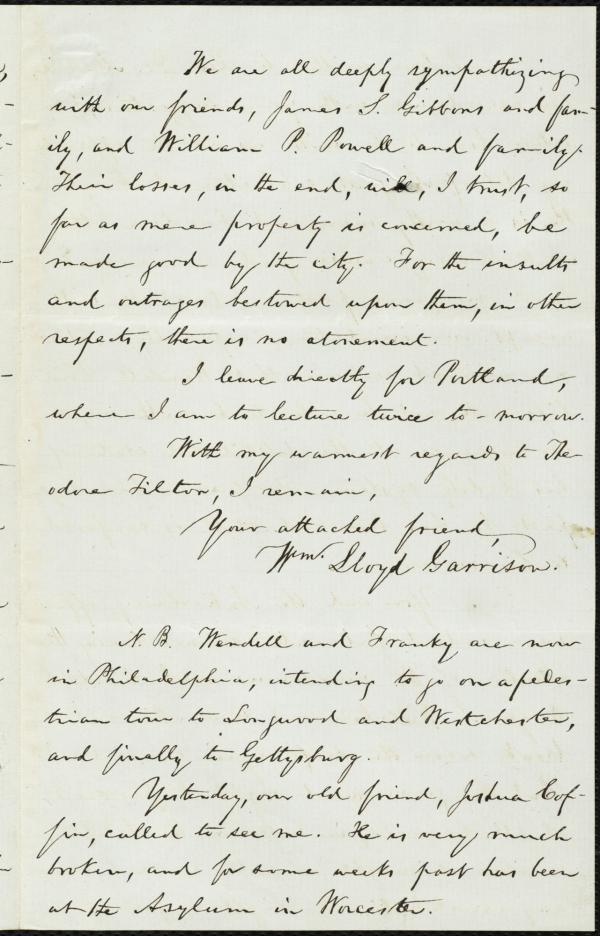 We are all deeply sympathizing
with our friends, James S. Gibbons and fam-
ily, and William P. Powell and family.
Their losses, in the end, will, I trust, so
far as mere property is concerned, be
made good by the city. For the insults
and outrages bestowed upon them, in other
respects, there is no atonement.
I leave directly for Portland,
where I am to lecture twice to-morrow.
With my warmest regards to The-
odore Tilton, I remain,
Your attached friend,
Wm. Lloyd Garrison.
N. B. Wendell and Franky are now
in Philadelphia, intending to go on a pedes-
trian tour to Longwood and Westchester,
and finally to Gettysburg.
Yesterday, our old friend, Joshua Cof-
fin, called to see me. He is very much
broken, and for some weeks past has been
at the Asylum in Worcester.